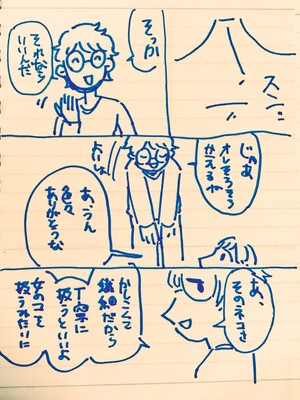 スン…
そっか
それなら
いいんだ
じゃあ
オレそろそろ
かえるわ
よいしょ
あ、うん
色々
ありがとうな
あ、
そのネコさ
かしこくて
繊細だから
丁寧に
扱うといいよ
女のコを
扱うみたいに